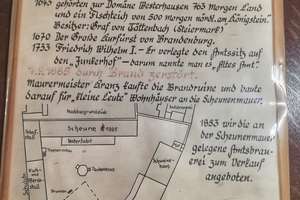 1643 gehörten zur Domäne Westerhausen 703 Morgen Land
und ein Fischteich von 500 morgen nördl. am Königstein.
Besitzer: Graf von Tättenbach (Steiermark)
1670 Der Große Kurfürst von Brandenburg.
1733 Friedrich Wilhelm I.- Er verlegte den Amtssitz auf
den "Junkerhof"- darum nannte man es "Altes Amt."
durch Brand zerstört.
Maurermeister Kranz kaufte die Brandruine und baute
darauf für "kleine Leute" Wohnhäuser an die Scheunenmauer.
1883 wird die an
der Scheunenmauer
gelegene Amtsbrau-
erei zum Verkauf
angeboten.
Scheune
Schaf-
stall